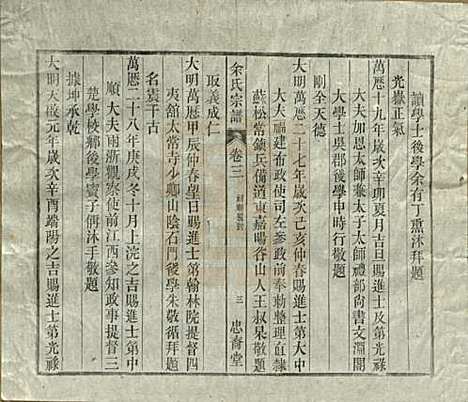 讀學士後學余有丁熏沐拜題
光嶽正氣
萬厯十九年歲次辛卯夏月吉旦賜進士及第
大明光祿大夫太師兼太子太師禮部尚書文淵閣
大學士吳郡後學申時行敬題
剛全天德
大明萬厯二十七年歲次己亥仲春賜進士第大中
大夫福建布政使司左參政前奉勅整理直隸
蘇松常鎮兵備消東嘉暘谷山人王叔杲敬題
余氏宗譜
卷三
三
忠裔堂
取義成仁
大明萬厯甲辰仲春望日賜進士第翰林院提督四
夷舘太常寺少卿山陰石門後學朱敬循拜題
名震千古
萬厯三十八年庚戌冬十月上浣之吉賜進士第中
順大夫兩浙觀察使前江西參知政事提督三
楚學校鄉後學竇子偁沐手敬題
據坤承乾
大明天啟元年歲次辛酉端陽之吉賜進士第光祿